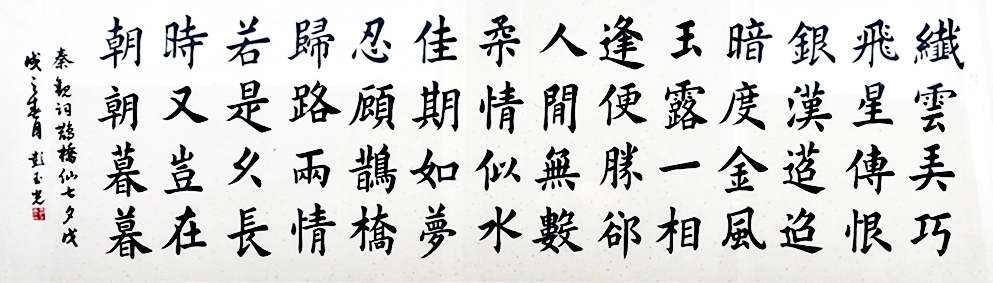 纖雲弄巧
飛星傳恨
銀漢迢迢
暗度金風
玉露一相
逢便勝郤
人間無數
柔情似水
佳期如夢
忍顧鵲橋
歸路兩情
若是久長
時又豈在
朝朝暮暮
秦観詞鵲橋仙七夕戊
戌之春月 彭玉光